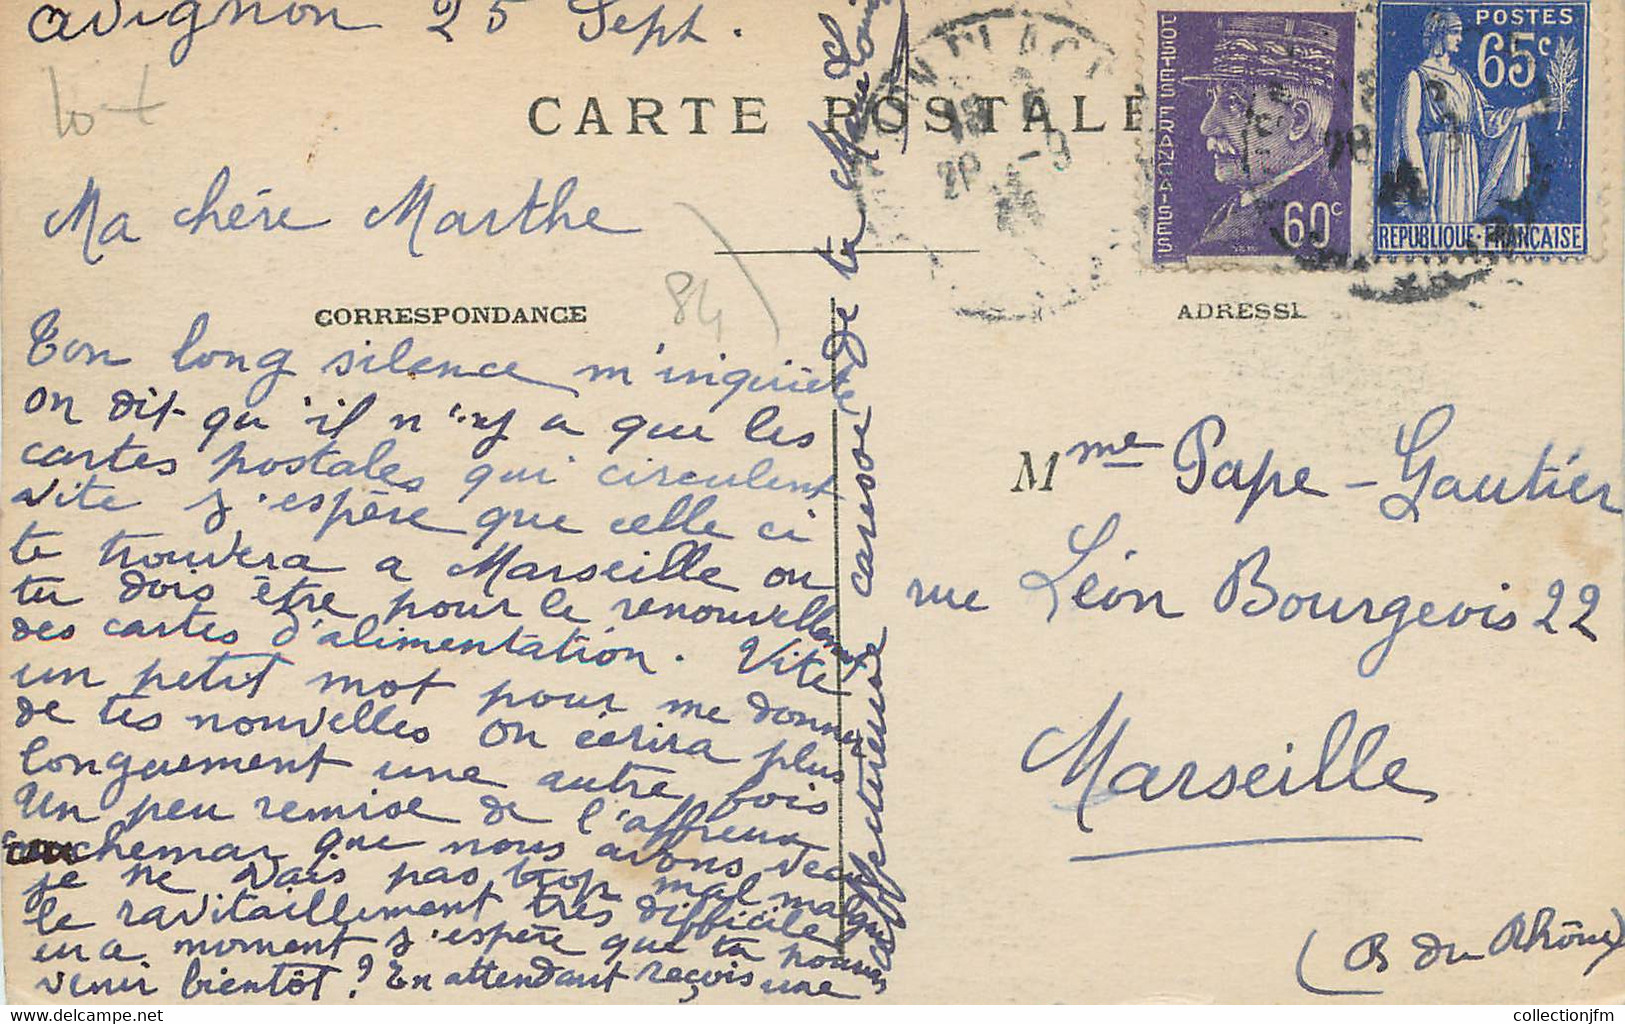 Avignon 25 Sept.
10+
CARTE POSTALE
POSTES FRANÇAISES
60c
POSTES
65c
REPUBLIQUE-FRANÇAISE
Ma chére Marthe
84
CORRESPONDANCE
ADRESSE
Ton long silence m'inquiéte
on dit qu'il n'y a que les
cartes postales qui circulent
vite j'espère que celle ci
te trouvera a Marseille ou
tu dois être pour le renouvellement
des cartes d'alimentation. Vite
un petit mot pour me donner
de tes nouvelles on écrira plus
longuement une autre fois
Un peu remise de l'affreux
cauchemar que nous avons vecu
je ne vais pas trop mal malgré
le ravitaillement très difficile
en a moment j'espère que tu pourras
venir bientôt? En attendant reçois une
affectueuse caresse de ta
Mme Pape-Gautier
rue Léon Bourgeois 22
Marseille
(B du Rhône)
collectionjfm